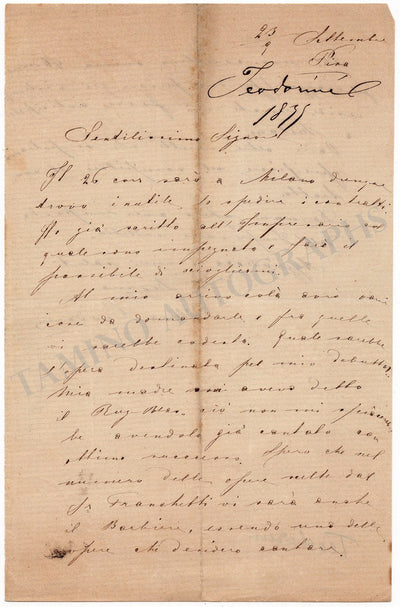 23 Settembre
9 Pisa
Teodorini E
Gentilissimo Signore
Il 26 corr sarò a Milano dunque
trovo inutile spedire i contratti
Ho già scritto all'Impresario
quale sono impegnata e farò il
possibile di sciogliermi
Al mio arrivo colà avrò varie
cose da domandarle e fra quelle
vi sarebbe codesta. Quale sarebbe
l'opera destinata pel mio debutto
mia madre mi aveva detto
il Ruy Blas ciò non mi
be avendolo già cantato con
ottimo successo. Spero che nel
numero delle opere
Sr Franchetti vi sarà anche
il Barbiere, essendo una delle
opere che desidero cantare.
TAMINO AUTOGRAPHS